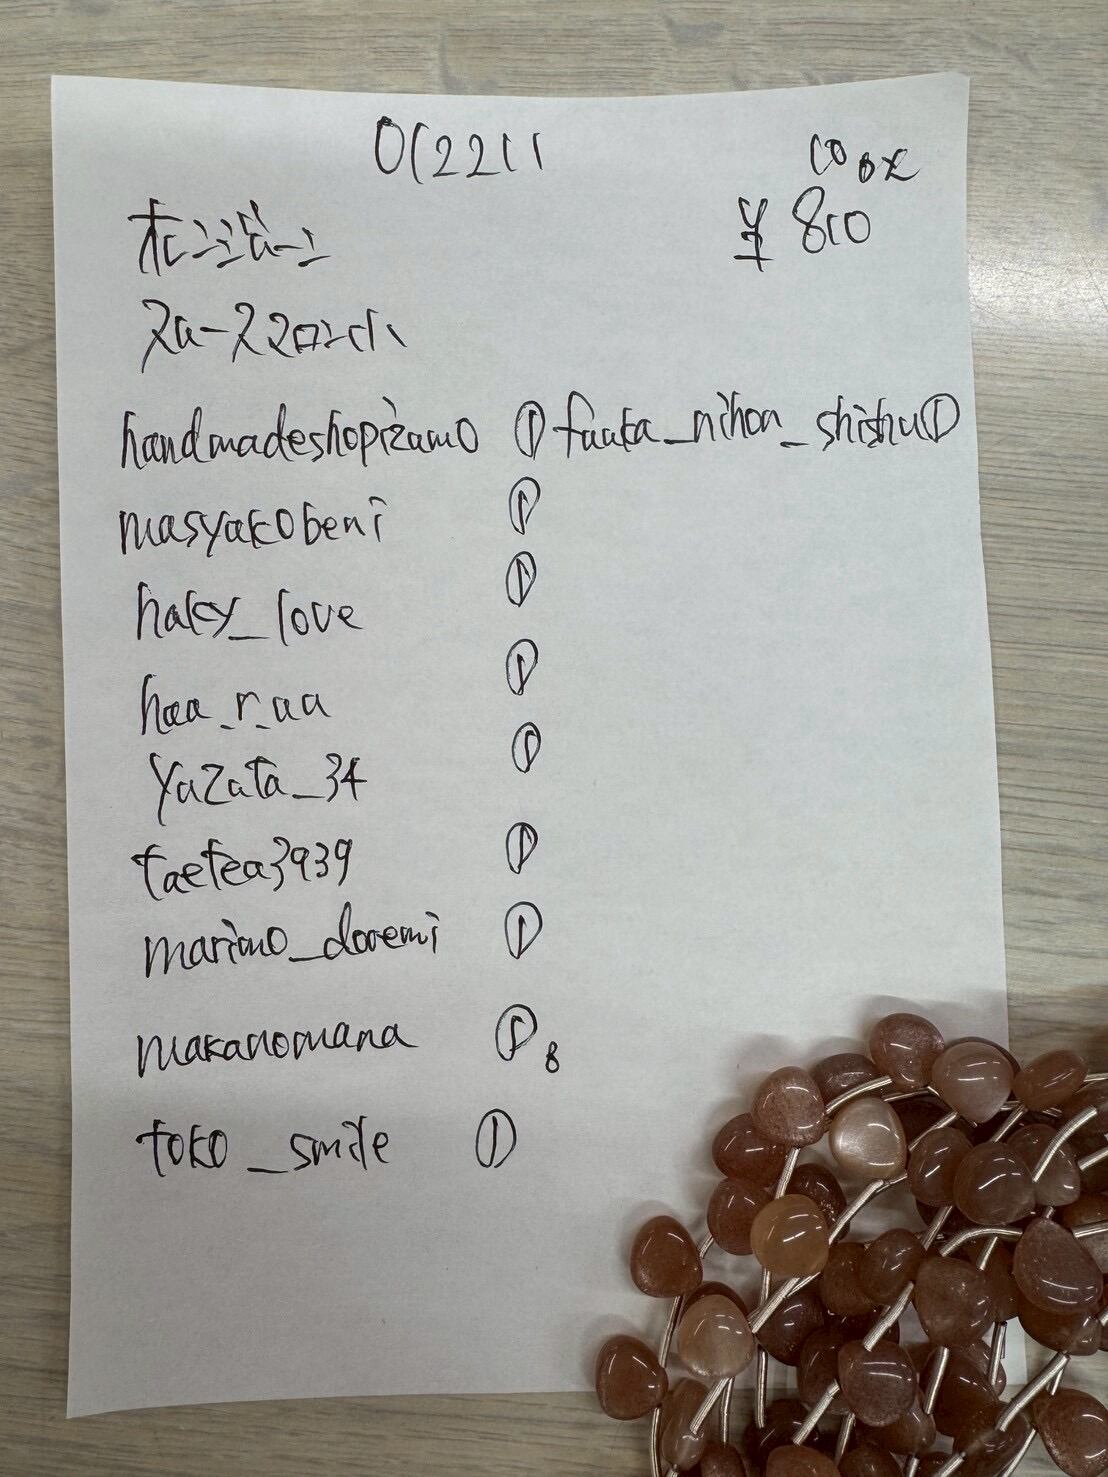 012211
¥ 810
handmadeshopizumo ① fuuka_nihon_shishu①
masyakobeni ①
haley_love ①
haa_r_aa ①
yazata_34 ①
taetea3939 ①
marimo_doremi ①
makanomana ① B
toko_smile ①